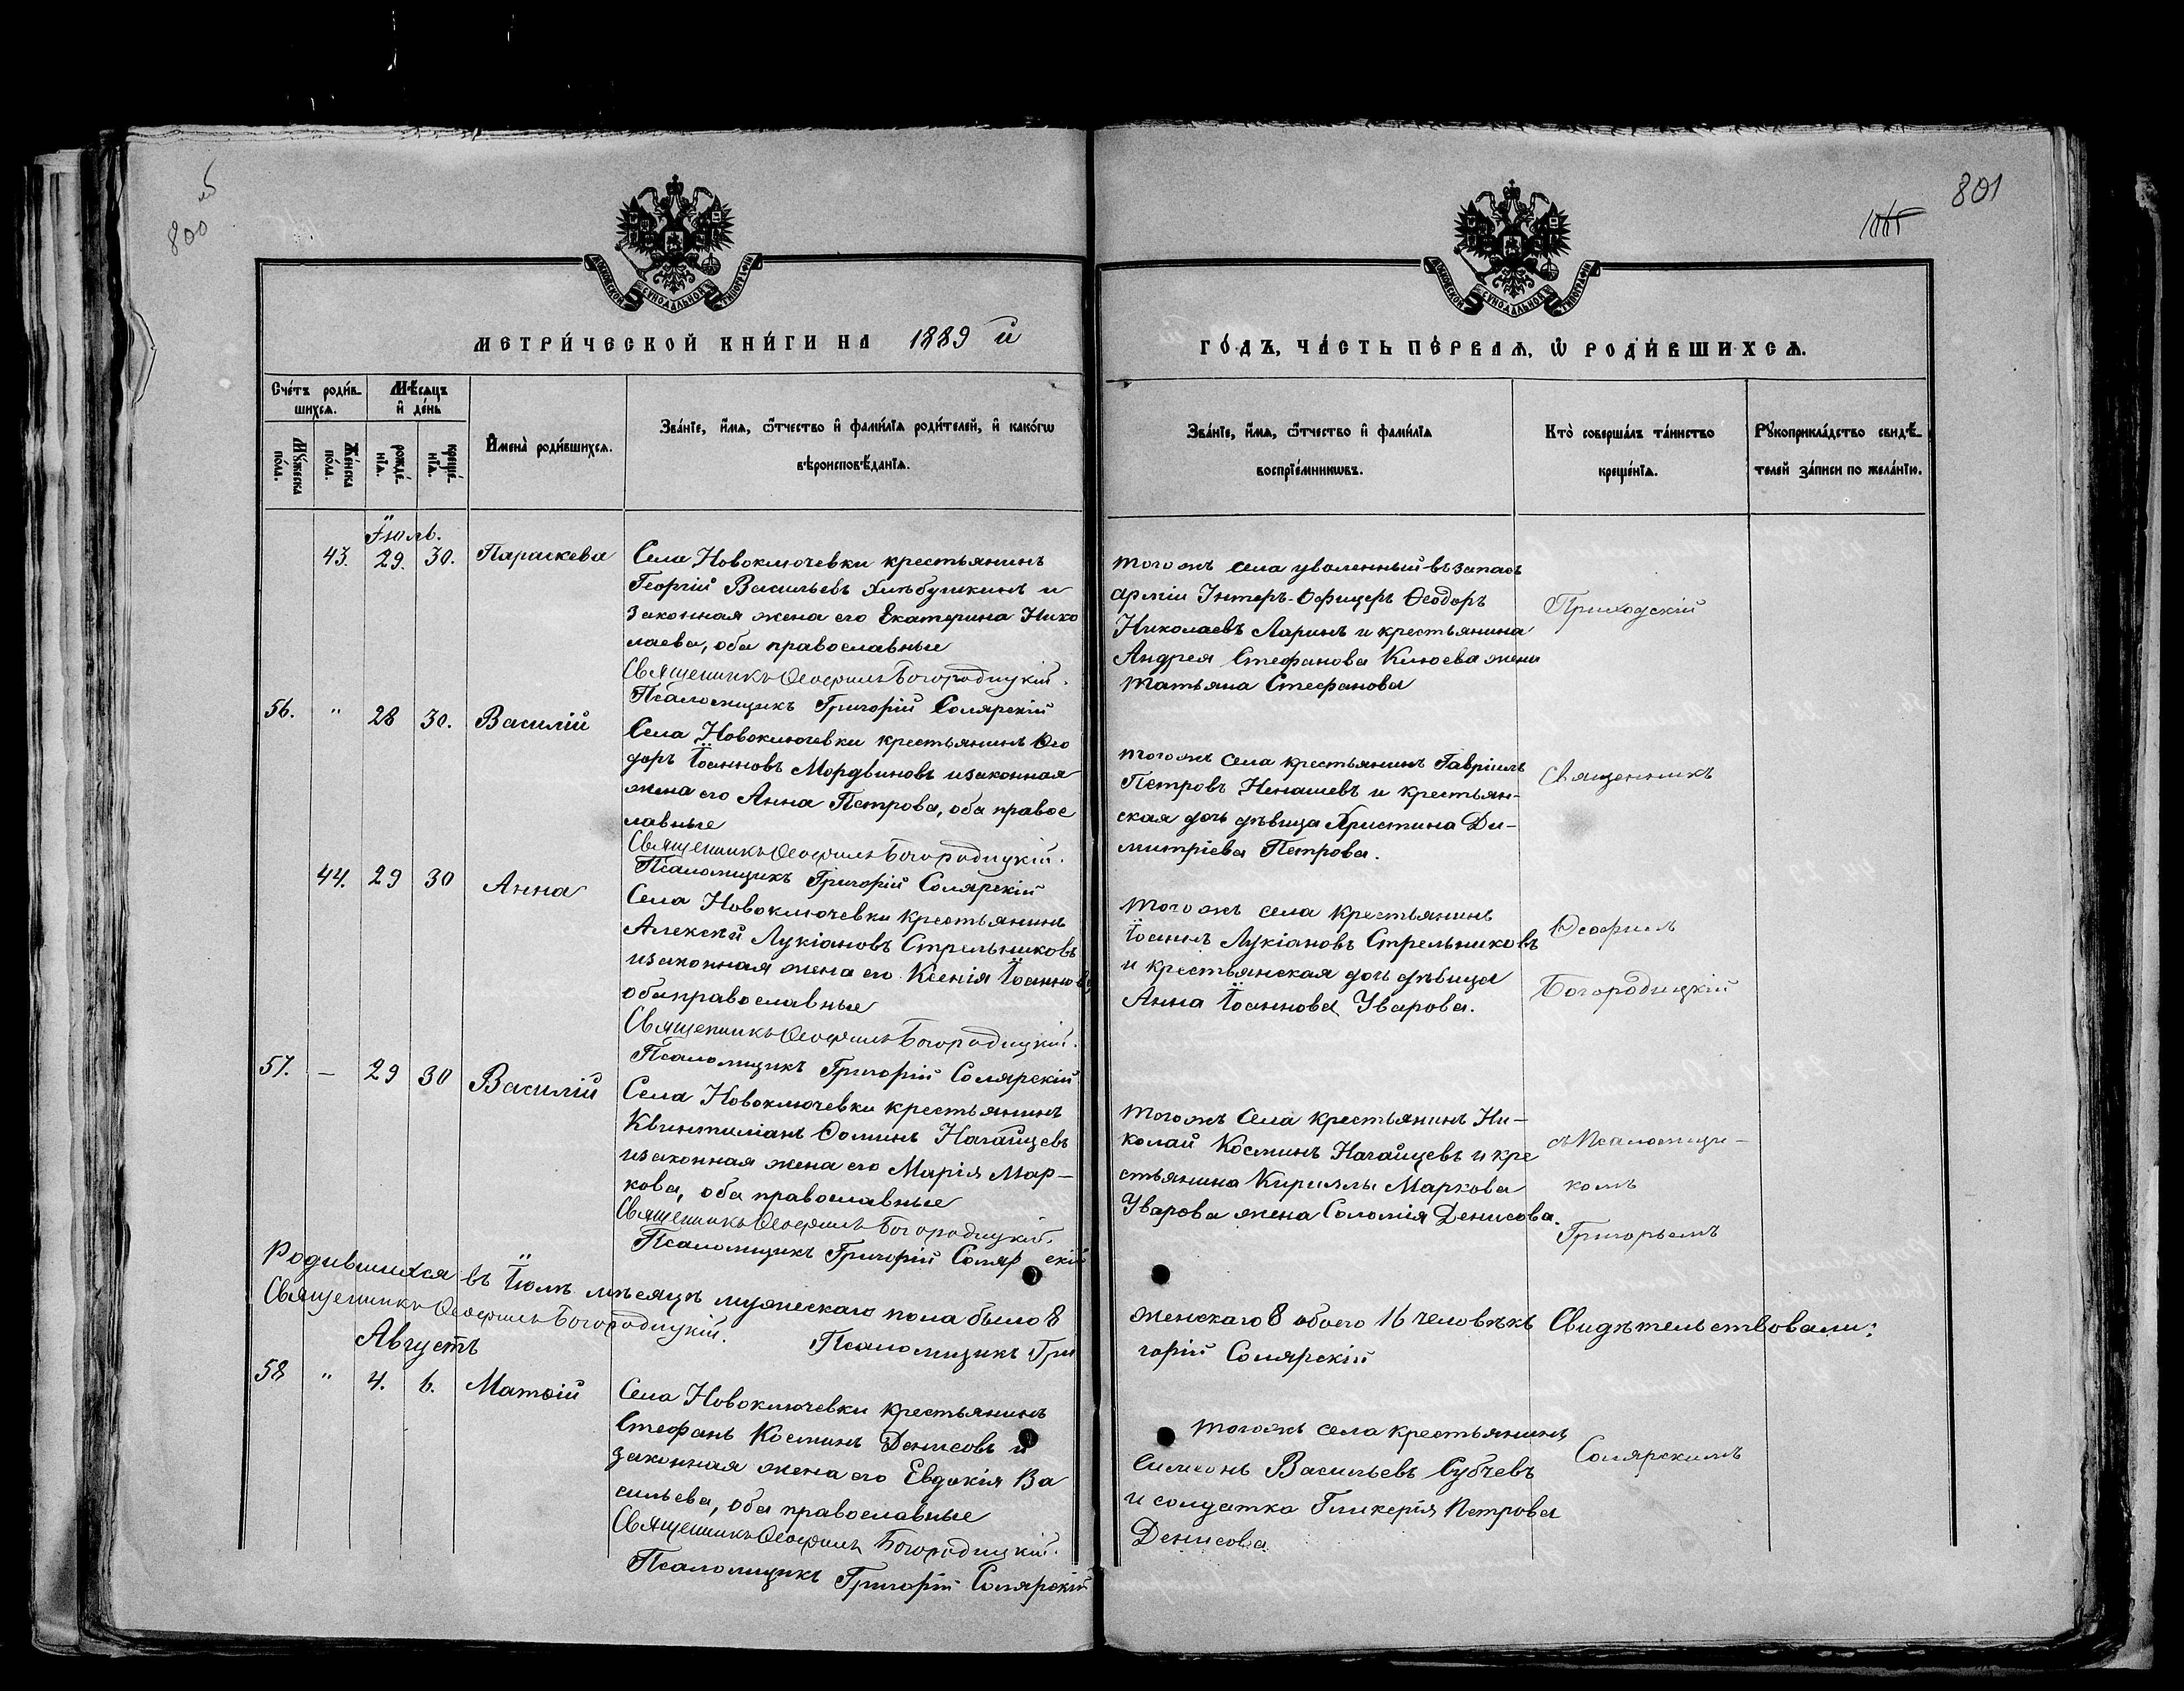 800 об
801
1015
МОСКОВСКОЙ СѴНОДАЛЬНОЙ ТИПОГРАФІИ
МОСКОВСКОЙ СѴНОДАЛЬНОЙ ТИПОГРАФІИ
МЕТРИ́ЧЕСКОЙ КНИ́ГИ НА 1889 й
ГО́ДЪ, ЧА́СТЬ ПЕ́РВАѦ, Ѡ҆ РОДИ́ВШИХСѦ.
Сче́тъ роди́в-
шихсѧ.
Мѣ́сѧцъ
и҆ де́нь
Мꙋ́жеска
по́ла.
Же́нска
по́ла.
рожде́-
нїѧ.
креще́-
нїѧ.
И҆мена̀ роди́вшихсѧ.
Зва́нїе, и҆́мѧ, ѻ҆́тчество и҆ фами́лїѧ роди́телей, и҆ како́гѡ
вѣроисповѣ́данїѧ.
Зва́нїе, и҆́мѧ, ѻ҆́тчество и҆ фами́лїѧ
воспрїе́мникѡвъ.
Кто̀ соверша́лъ та́инство
креще́нїѧ.
Рꙋкоприкла́дство свидѣ́-
телей за́писи по жела́нїю.
Іюль.
43. 29. 30. Параскева
Села Новоключевки крестьянинъ
Георгій Васильевъ Хлѣбушкинъ и
законная жена его Екатерина Нико
лаева, оба православные
Священникъ Ѳеофилъ Богородицкій.
Псаломщикъ Григорій Солярскій
тогожъ села уволенный въ запасъ
арміи Унтеръ-Офицеръ Ѳеодоръ
Николаевъ Ларинъ и крестьянина
Андрея Стефанова Клюева жена
Татьяна Стефанова
56. " 28 30. Василій
Села Новоключевки крестьянинъ Ѳео
доръ Іоанновъ Мордвиновъ и законная
жена его Анна Петрова, оба правос
лавные
Священникъ Ѳеофилъ Богородицкій.
Псаломщикъ Григорій Солярскій
тогожъ села крестьянинъ Гавріилъ
Петровъ Ненашевъ и крестьян-
ская дочь дѣвица Христина Ди-
митріева Петрова.
44. 29 30 Анна
Села Новоключевки крестьянинъ
Алексѣй Лукіановъ Стрельниковъ
и законная жена его Ксенія Іоаннова,
оба православные
Священникъ Ѳеофилъ Богородицкій.
Псаломщикъ Григорій Солярскій
тогожъ села крестьянинъ
Іоаннъ Лукіановъ Стрельниковъ
и крестьянская дочь дѣвица
Анна Іоаннова Уварова.
57. — 29 30 Василій
Села Новоключевки крестьянинъ
Квинтиліанъ Ѳоминъ Нагайцевъ
и законная жена его Марія Мар-
кова, оба православные
Священникъ Ѳеофилъ Богородицкій.
Псаломщикъ Григорій Солярскій
тогожъ села крестьянинъ Ни-
колай Косминъ Нагайцевъ и кре
стьянина Кириллы Маркова
Уварова жена Соломія Денисова.
Приходскій
Священникъ
Ѳеофилъ
Богородицкій
съ Псаломщи-
комъ
Григорьемъ
Солярскимъ
Родившихся въ Іюлѣ мѣсяцѣ мужескаго пола было 8
женскаго 8 обоего 16 человѣкъ Свидѣтельствовали:
Священникъ Ѳеофилъ Богородицкій. Псаломщикъ Гри
горій Солярскій
Августъ
58 " 4. 6. Матѳій
Села Новоключевки крестьянинъ
Стефанъ Косминъ Денисовъ и
законная жена его Евдокія Ва
сильева, оба православные
Священникъ Ѳеофилъ Богородицкій.
Псаломщикъ Григорій Солярскій
тогожъ села крестьянинъ
Симеонъ Васильевъ Субчевъ
и солдатка Гликерія Петрова
Денисова